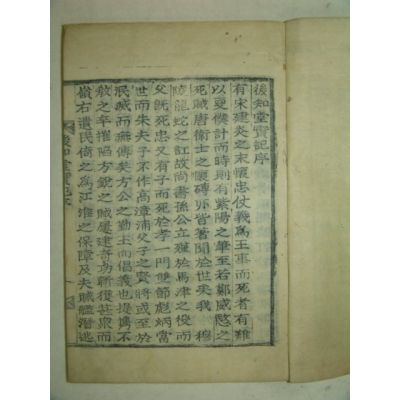 後知堂實記序
有宋建炎之末懷忠仗義爲王事而死者有難
以更僕計而時則有紫陽之筆至若鄭威愍之
死賊唐衛士之懷磚亦皆著聞於世矣我 穆
陵龍蛇之訌故尚書孫公立殣於馬津之而
父旣死忠又有子而死於孝一門雙節彪炳當
世而朱夫子不作高漳浦父子之賢將或至於
泯滅而無傳矣方公之勤王而倡義也提不
敎之卒摧陷方銳之賊屢建奇勳斬獲甚衆而
嶺右遺民倚之爲江淮之保障及夫賊艦潛逃
後知堂實記序